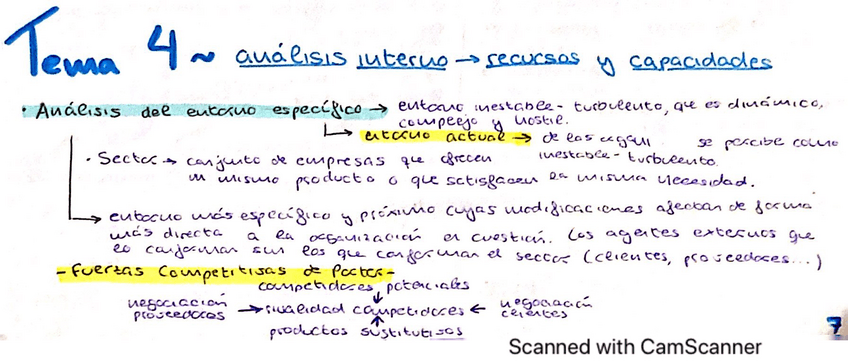 Tema 4 ~ análisis interno → recursos y capacidades
· Análisis del entorno específico → entorno inestable - turbulento, que es dinámico,
complejo y hostil.
↳ entorno actual → de las organi. se percibe como
inestable - turbulento.
· Sector → conjunto de empresas que ofrecen
un mismo producto o que satisfacen la misma necesidad.
→ entorno más específico y próximo cuyas modificaciones afectan de forma
más directa a la organización en cuestión. Los agentes externos que
lo conforman son los que conforman el sector (clientes, proveedores...)
- Fuerzas Competitivas de Porter -
competidores potenciales
negociación proveedores → rivalidad competidores ← negociación clientes
productos sustitutivos
7
Scanned with CamScanner